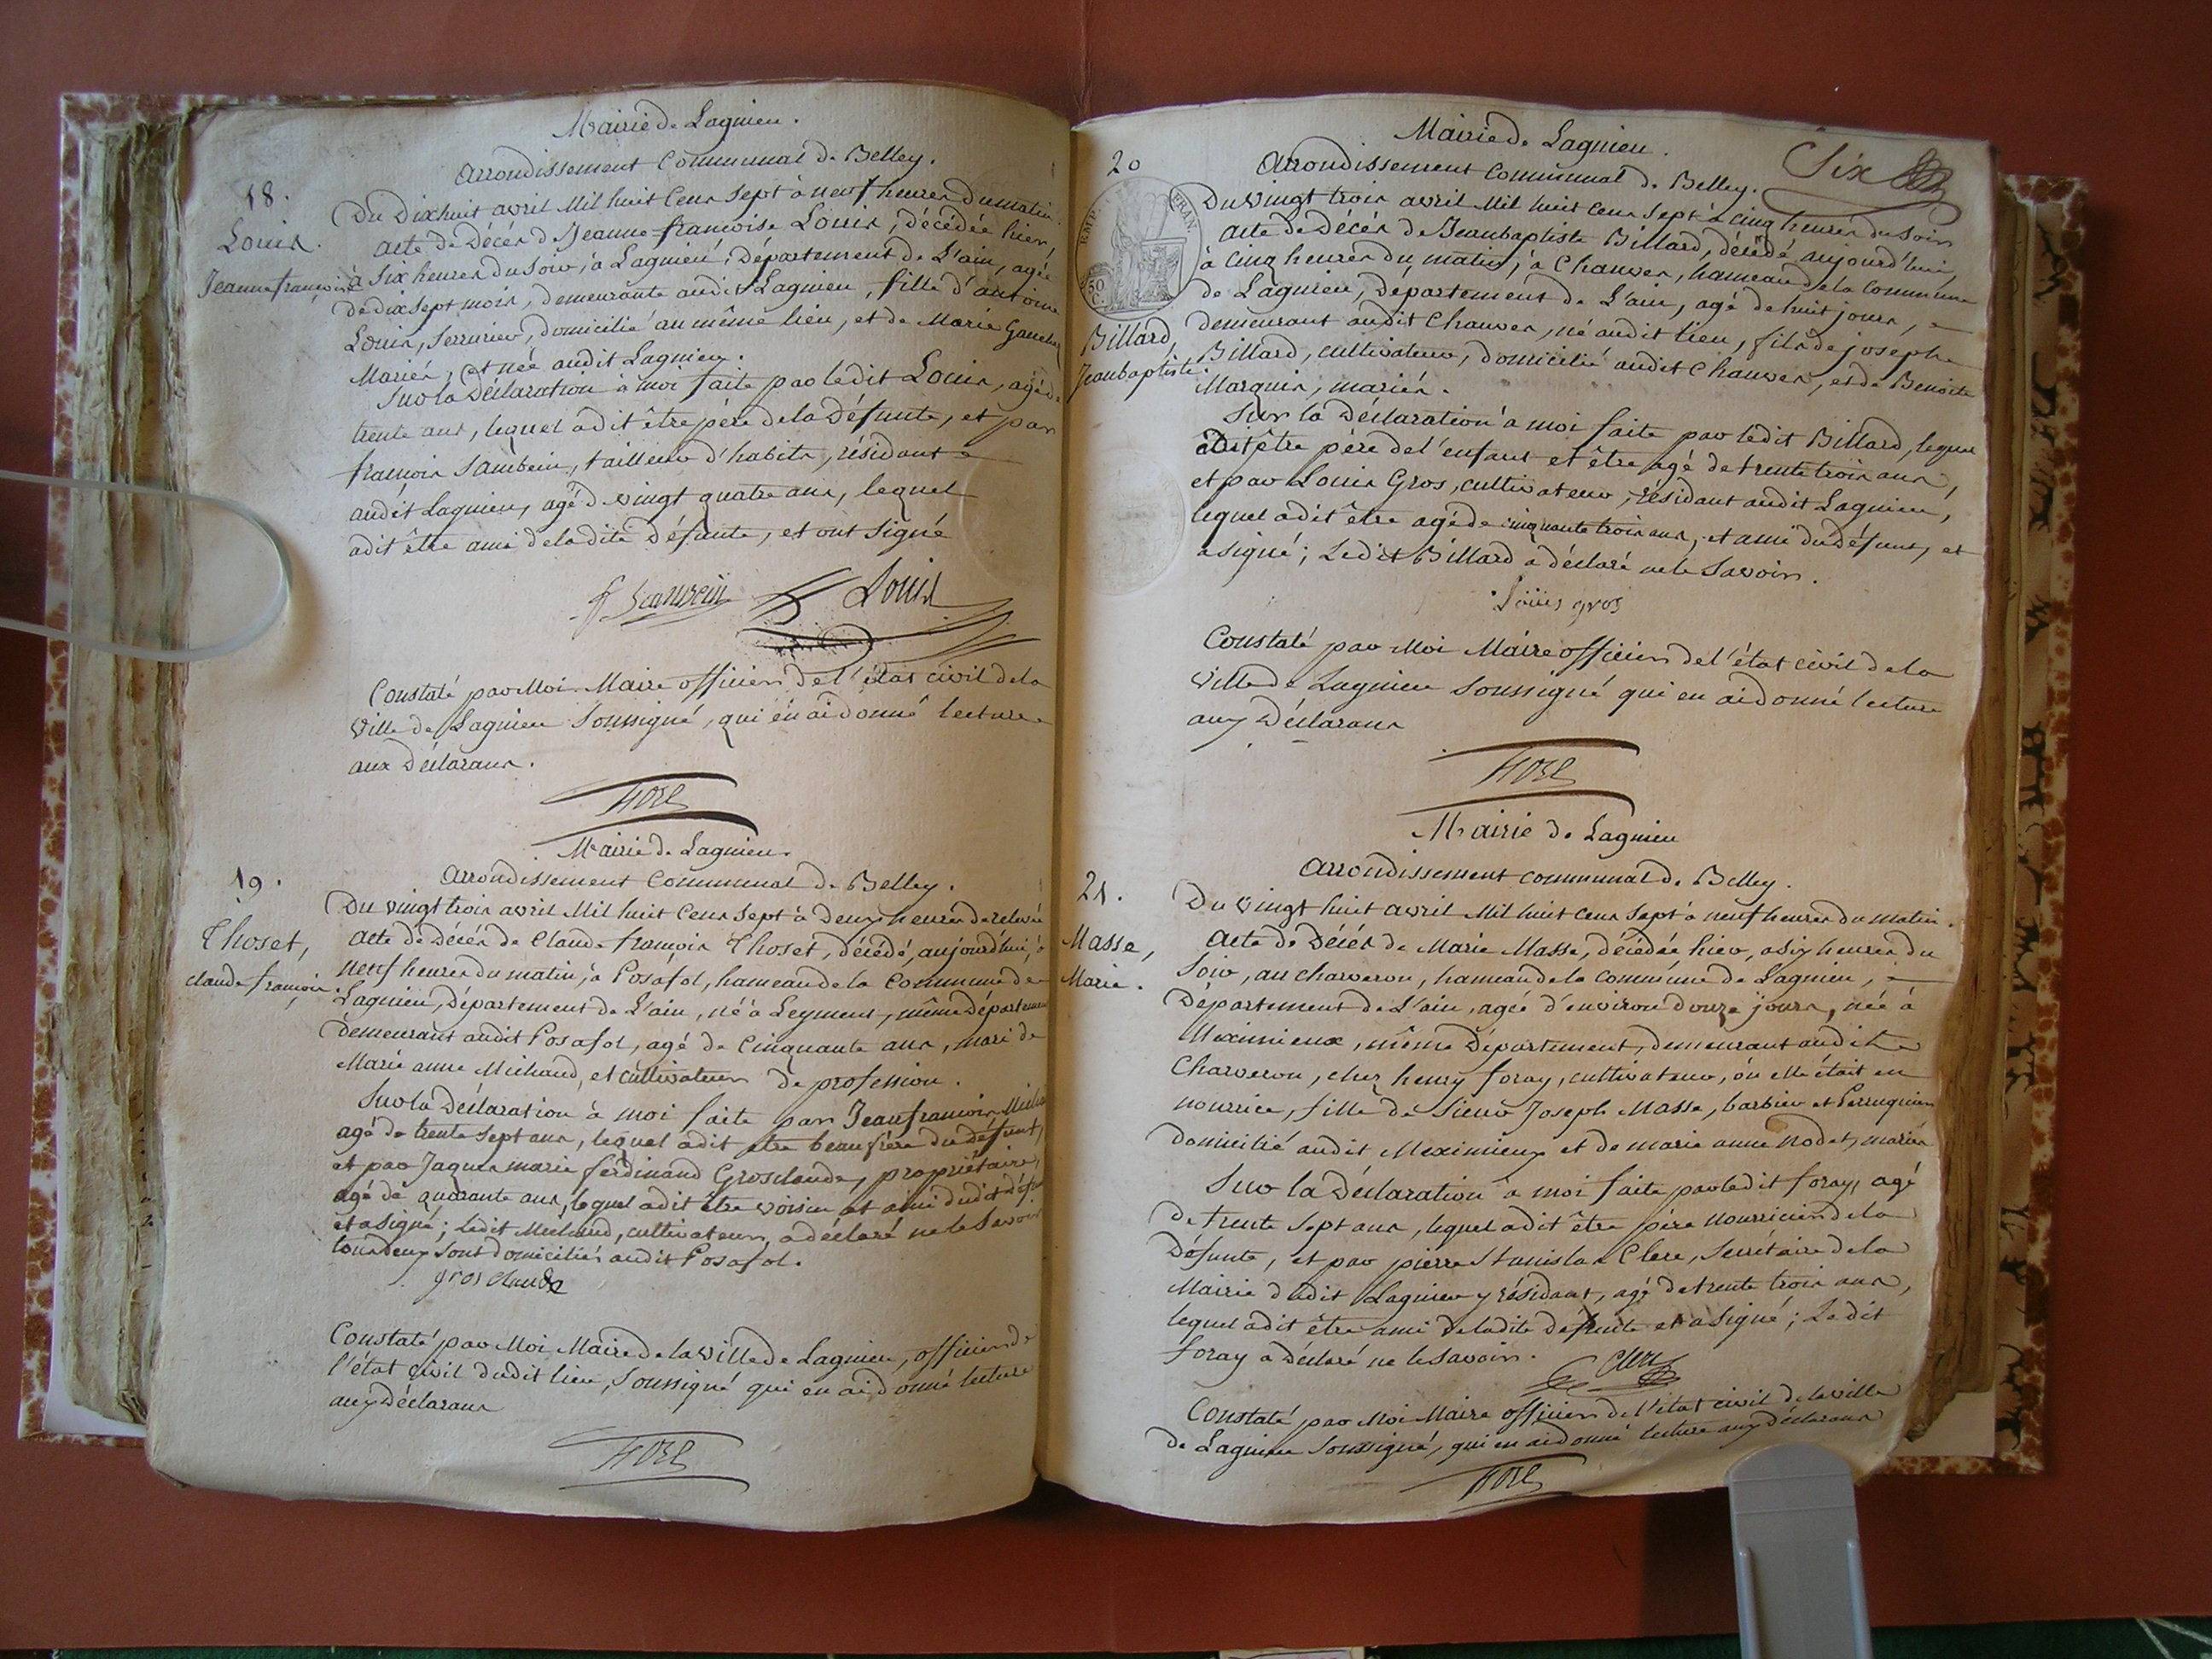 Mairie de Lagnieu.
Arrondissement Communal de Belley.
18.
Louis.
Jeanne françoise
Du Dixhuit avril Mil huit Cens Sept à neuf heures du matin
acte de Décès de Jeanne françoise Louis, décédée hier,
à Six heures du Soir, à Lagnieu, Département de L'ain, agée
de dix sept mois, demeurante audit Lagnieu, fille d'antoine
Louis, Serrurier, domicilié au même lieu, et de Marie
Mariés, et née audit Lagnieu.
Sur la Déclaration à moi faite par ledit Louis, agé de
trente ans, lequel a dit être père de la Défunte, et par
françois tailleur d'habits, résidant
audit Lagnieu, agé de vingt quatre ans, lequel
a dit être ami de ladite Défunte, et ont Signé
Louis
Constaté par Moi Maire officier de l'état civil de la
Ville de Lagnieu Soussigné, qui en ai donné lecture
aux Déclarans.
Mairie de Lagnieu.
Arrondissement Communal de Belley.
19.
Thoset,
claude françois.
Du vingt trois avril Mil huit Cens Sept à Deux heures de relevée
acte de Décès de Claude françois Thoset, décédé, aujourd'hui, à
neuf heures du matin, à Posafol, hameau de la Commune de
Lagnieu, Département de L'ain, né à Leyment, même Département
demeurant audit Posafol, agé de Cinquante ans, mari de
Marie anne Michaud, et cultivateur de profession.
Sur la Déclaration à moi faite par Jean françois
agé de trente Sept ans, lequel a dit être beaufrère du défunt,
et par Jaques marie ferdinand Grosclaude, propriétaire,
agé de quarante ans, lequel a dit être voisin et ami dudit défunt
et a signé; ledit Michaud, cultivateur, a déclaré ne le Savoir
tous deux Sont domiciliés audit Posafol.
grosclaude
Constaté par Moi Maire de la Ville de Lagnieu, officier de
l'état civil dudit lieu, Soussigné qui en ai donné lecture
aux Déclarans
Six
Mairie de Lagnieu.
Arrondissement Communal de Belley.
20
EMP. FRAN.
50 C.
Billard,
Jeanbaptiste.
Du vingt trois avril Mil huit Cens Sept à cinq heures du Soir
acte de Décès de Jeanbaptiste Billard, décédé aujourd'hui,
à Cinq heures du matin, à Chauves, hameau de la Commune
de Lagnieu, Département de L'ain, agé de huit jours,
demeurant audit Chauves, né audit lieu, fils de joseph
Billard, cultivateur, domicilié audit Chauves, et de Benoite
Marquis, mariés.
Sur la Déclaration à moi faite par ledit Billard, lequel
a dit être père de l'enfant et être agé de trente trois ans,
et par Louis Gros, cultivateur, résidant audit Lagnieu,
lequel a dit être agé de cinquante trois ans, et ami du Défunt, et
a signé; Ledit Billard a déclaré ne le Savoir.
Louis gros
Constaté par Moi Maire officier de l'état civil de la
Ville de Lagnieu Soussigné qui en ai donné lecture
aux Déclarans
Mairie de Lagnieu
Arrondissement communal de Belley.
21.
Masse,
Marie.
Du Vingt huit avril Mil huit cens Sept à neuf heures du matin.
Acte de Décès de Marie Masse, décédée hier, a six heures du
Soir, au charveron, hameau de la Commune de Lagnieu,
Département de L'ain, agée d'environ douze jours, née à
Meximieux, même Département, demeurant audit
Charveron, chez henry foray, cultivateur, où elle était en
nourrice, fille de Sieur Joseph Masse, barbier et Perruquier
domicilié audit Meximieux et de marie anne Nodet, mariés
Sur la Déclaration à moi faite par ledit foray, agé
de trente Sept ans, lequel a dit être père nourricier de la
Défunte, et par pierre Stanislas Clere, Secrétaire de la
Mairie dudit Lagnieu y résidant, agé de trente trois ans,
lequel a dit être ami de ladite défunte et a Signé; Ledit
foray a Déclaré ne le Savoir.
Constaté par Moi Maire officier de l'état civil de la ville
de Lagnieu Soussigné, qui en ai donné lecture aux déclarans